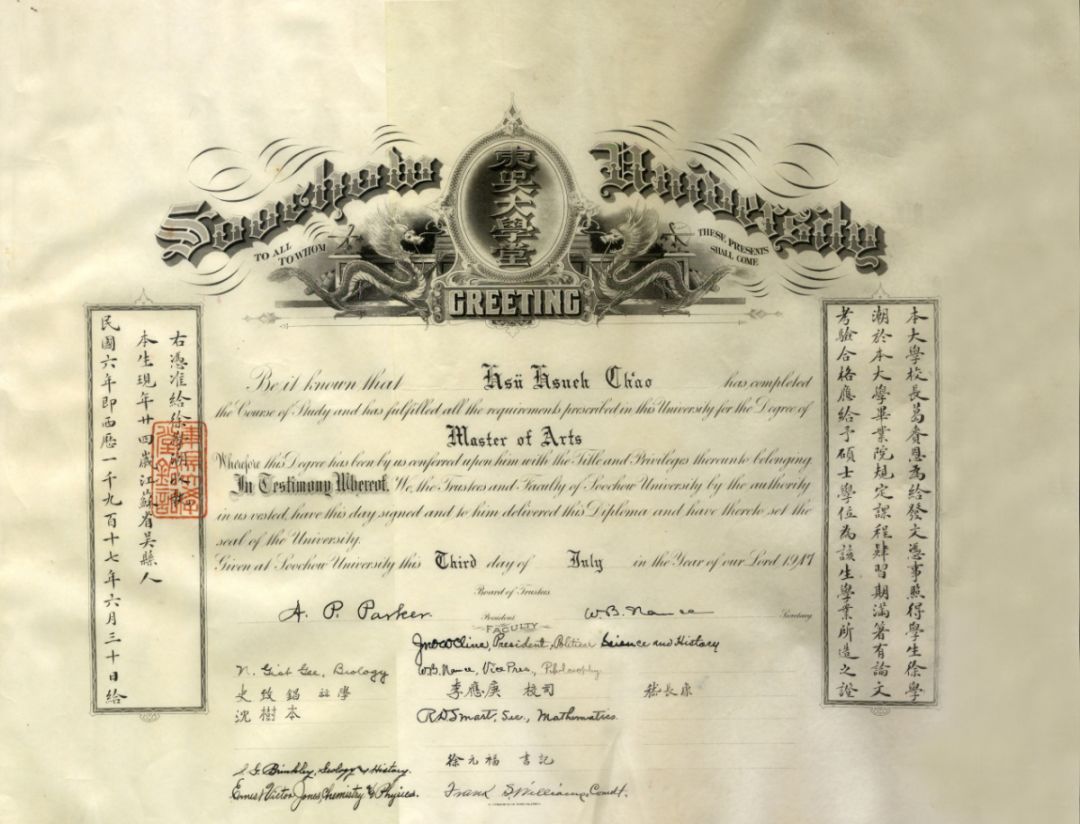 Soochow University
東吳大學堂
TO ALL
TO WHOM
THESE PRESENTS
SHALL COME
GREETING
本大學校長葛賚恩為給發文憑事照得學生徐學
潮於本大學畢業院規定課程肄習期滿著有論文
考驗合格應給予碩士學位為該生學業所造之證
Be it known that Hsü Hsueh Ch'ao has completed
the Course of Study and has fulfilled all the requirements prescribed in this University for the Degree of
Master of Arts
Wherefore this Degree has been by us conferred upon him with the Title and Privileges thereunto belonging.
In Testimony Whereof, We, the Trustees and Faculty of Soochow University by the authority
in us vested, have this day signed and to him delivered this Diploma and have thereto set the
seal of the University.
Given at Soochow University this Third day of July in the Year of our Lord 1917
右憑准給徐學潮收執
本生現年廿四歲江蘇省吳縣人
民國六年即西歷一千九百十七年六月三十日給
Board of Trustees
A. P. Parker President W.B. Nance Secretary
FACULTY
Jno W Cline, President, Political Science and History
N. Gist Gee, Biology W.B. Nance, Vice Pres., Philosophy
史致鍚 李應庚 校司 嵇長康
沈樹本 R.D. Smart, Sec., Mathematics.
徐元福 書記
Brinkley, Geology & History.
Ernest Victor Jones, Chemistry & Physics. Frank S. Williams, Comdt.